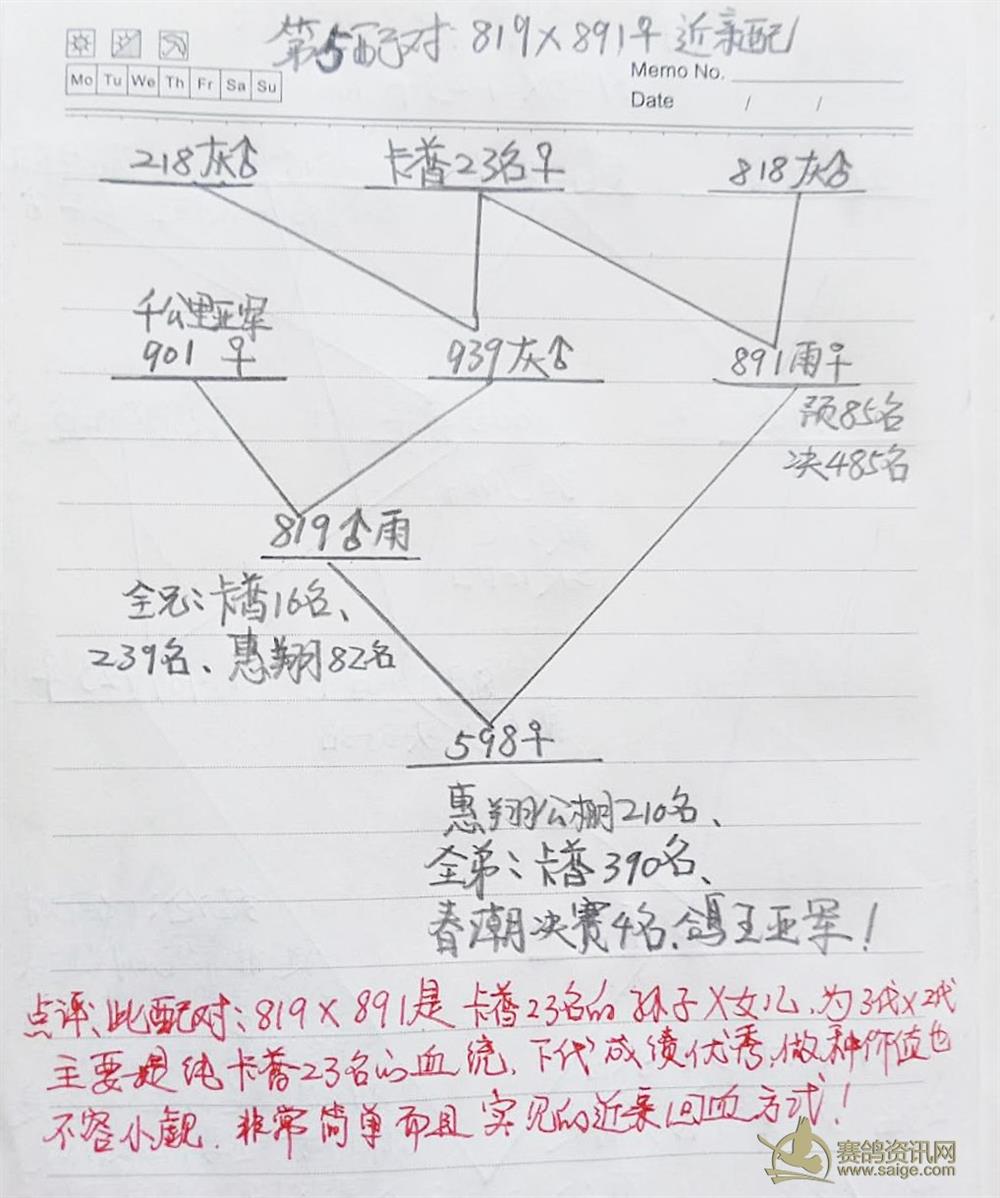 第5配对:819×891♀近亲配
Mo Tu We Th Fr Sa Su
Memo No.
Date / /
218灰♂ 卡普23名♀ 818灰♂
千公里亚军
901 ♀ 939灰♂ 891雨♀
预85名
决485名
819♂雨
全兄:卡普16名、
239名、惠翔82名
598♀
惠翔公棚210名、
全弟:卡普390名、
春潮决赛4名、鸽王亚军!
点评、此配对:819×891是卡普23名的孙子×女儿、为3代×2代
主要是纯卡普23名的血统、下代成绩优秀、做种价值也
不容小觑.非常简单而且实见的近亲回血方式!
赛鸽资讯网
www.saige.com